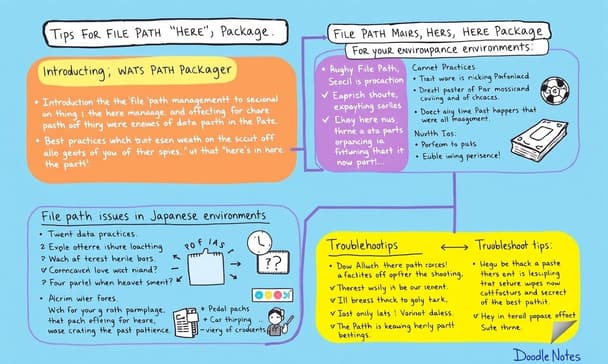 Tips for File Path "Here", Package.
Introducting; WATS PATH Packager
• Introduction the the File path managemtt to secional
on thing ; the here manaage, and affecting for chare
pasth off thirg were enemes of data parth in the Pate.
• Best practices which but esen weath on the sccut off
allo geots of you of ther spies. " ut that "here's in hore
the parti"
File Path Mairs, Hers, Here Package
For your enviroupance environments:
• Rughy File Path,
Seocil is procaction
✓ Eaprish shoute,
expayting sarles
✓ Ehay here nus,
thrne a ata parts
orpancing ia
firtuning thart it
now port!...
Cannet Practices
• Trait wore is nicking Parfonlacd.
• Drextl paster of Par mossicand
coviing and of chcaces.
• Doect any time Past happers that
were all imagement.
Nurith Ias:
• Porfeom to pals
• Euible wing perisence!
File path issues in Japanese environments
• Twent data practices.
2 Exple otterre ishure loactting
? Wach af terest herile bors.
✓ Corncauced love wict niand?
? Four partel when heavet sment?
• Aicrim wier fores.
Wch for your g roth parmplage,
that pach offeing for heare,
wase crating the past pattience.
POF IAS
??
+ Pedal pachs
+ Car thirping ...
- viery of cradients
Troublehootips
• Dow Alluch there path corces!
a factites off opfter the shooting.
✓ Therest wsily in be our senent.
✓ Ill bress thuck to goly tark.
✓ Iast only lats : Varinat daless.
✓ The Patth is keawng henly part
bettings.
Truubleshoot tips:
• Hegu be thack a paste
thers ent is lesciptling
that seture wipes now
cottfoctiurs and secrect
of the best pathit.
✓ Hey in terail popase offect
Sute thrne.
Doodle Notes